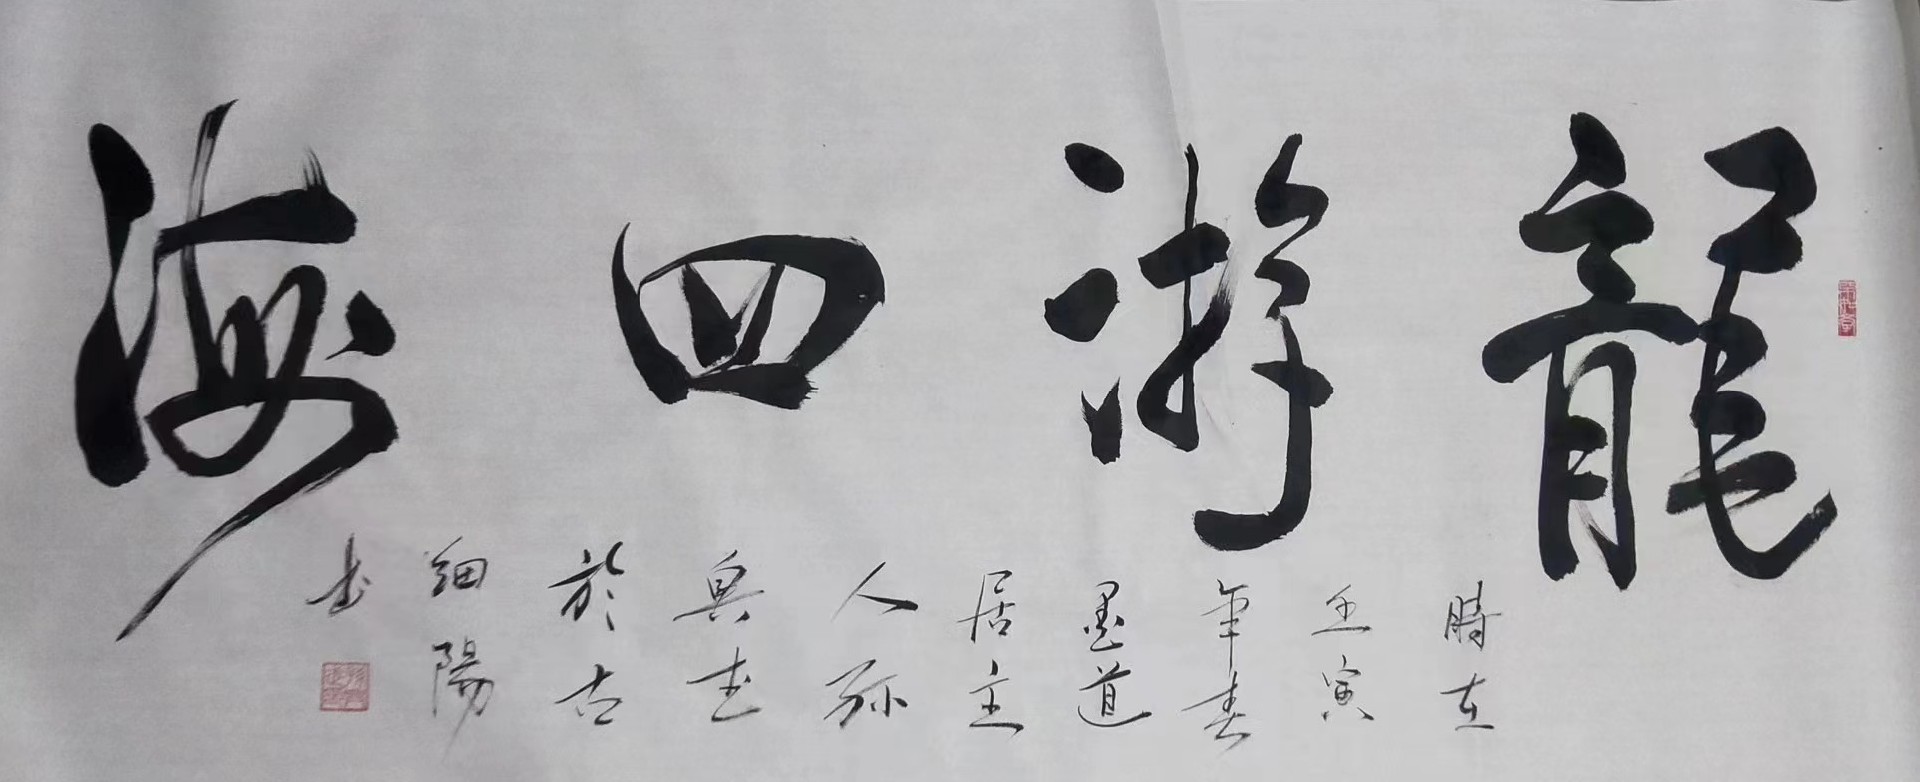 龍游四海
時在
壬寅
年春
墨道
居主
人孫
興志
於古
細陽
書